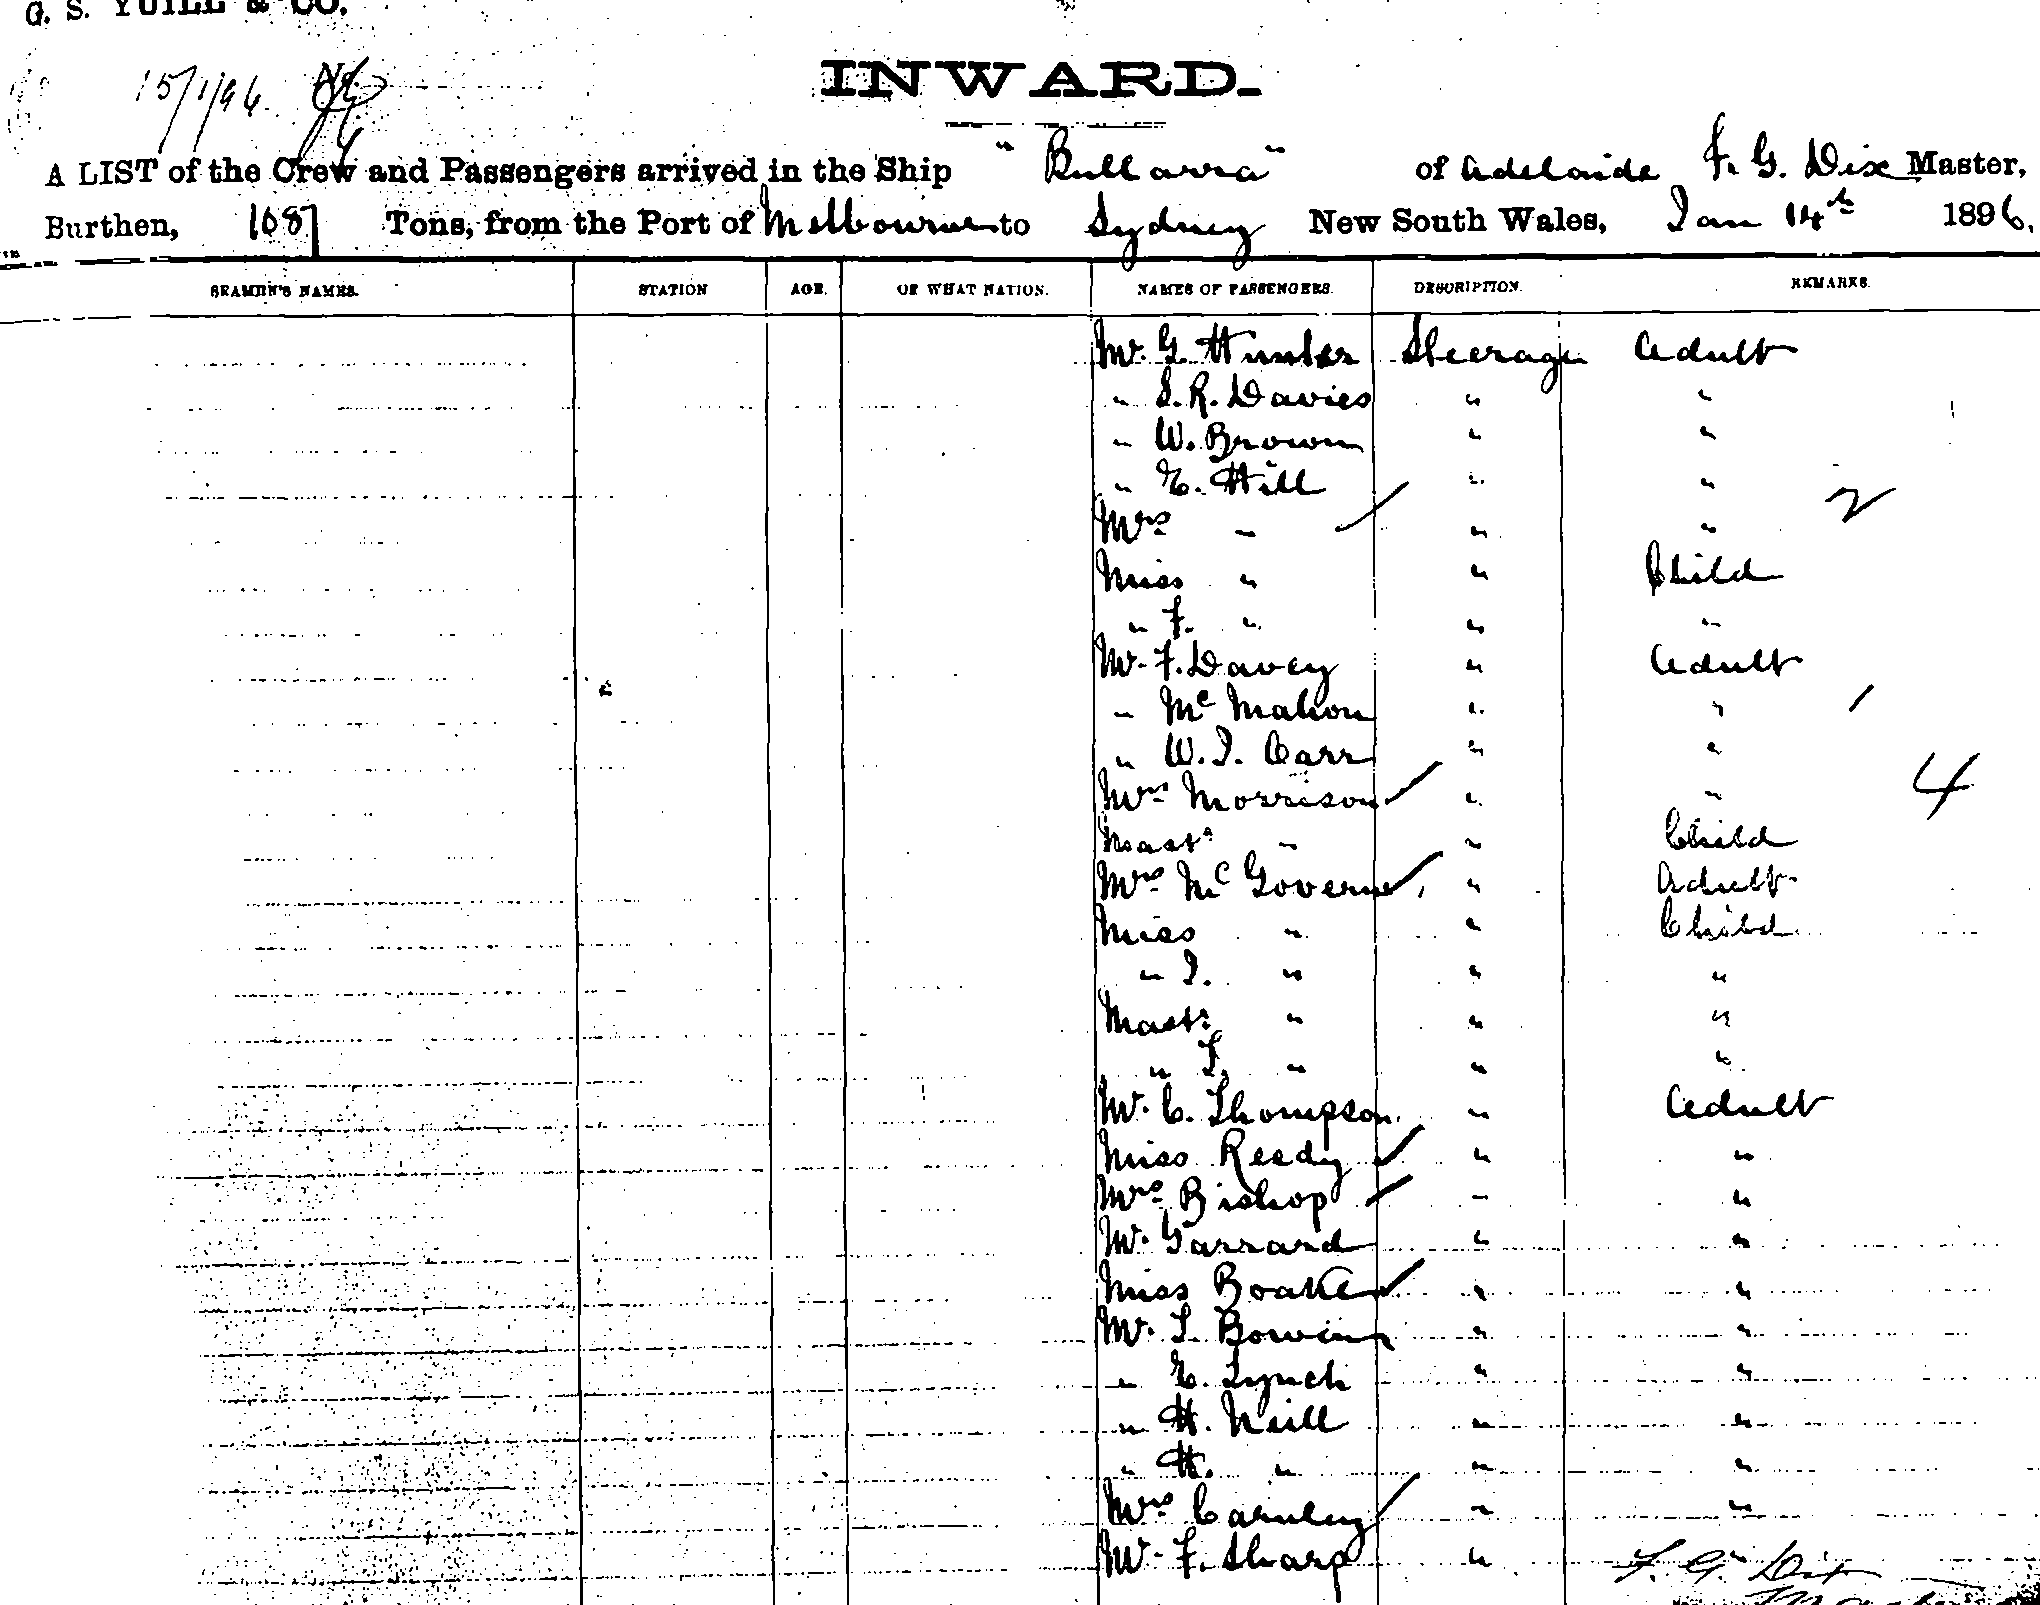 G. S. YUILL & CO.
15/1/96
INWARD.
A LIST of the Crew and Passengers arrived in the Ship "Bullarra" of Adelaide F. G. Dix Master,
Burthen, 1087 Tons, from the Port of Melbourne to Sydney New South Wales, Jan 14th 1896.
SEAMEN'S NAMES. STATION AGE. OF WHAT NATION. NAMES OF PASSENGERS. DESCRIPTION. REMARKS.
Mr. G. Hunter Steerage Adult
" S. R. Davies " "
" W. Brown " "
" E. Hill " "
Mrs " " " 2
Miss " " Child
" F. " " "
Mr. F. Davey " Adult
" McMahon " " 1
" W. J. Carr " "
Mrs Morrison " " 4
Mastr " " Child
Mrs McGovern " Adult
Miss " " Child
" J. " " "
Mastr " " "
" T. " " "
Mr. C. Thompson " Adult
Miss Reedy " "
Mrs Bishop " "
Mr. Garrard " "
Miss Boake " "
Mr. T. Bowing " "
" E. Lynch " "
" H. Neill " "
" H. " " "
Mrs Carnley " "
Mr. F. Sharp " F. G. Dix